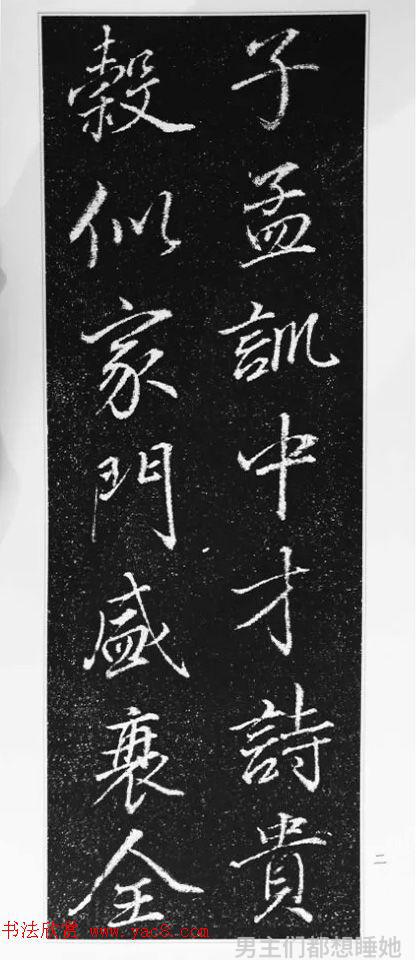 子孟訓中才詩貴
穀似家門盛衰全
二
书法欣赏 www.yac8.com
男主们都想睡她